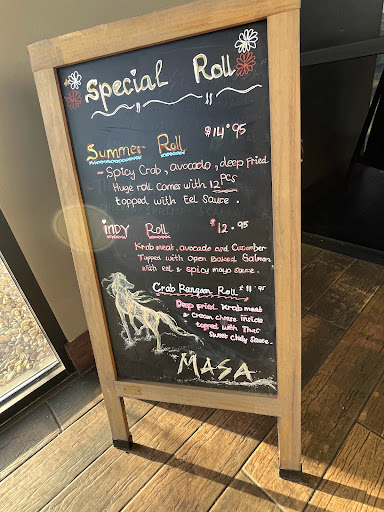 Special Roll
Summer Roll $14.95
~ Spicy Crab, avocado, deep fried
Huge roll comes with 12 PCS
topped with Eel Sauce.
iNDY Roll $12.95
Krab meat, avocado and Cucumber
Topped with Open Baked Salmon
with eel & spicy mayo sauce.
Crab Rangoon Roll $11.95
Deep fried Krab meat
& cream cheese inside
topped with Thai
Sweet chily sauce.
MASA